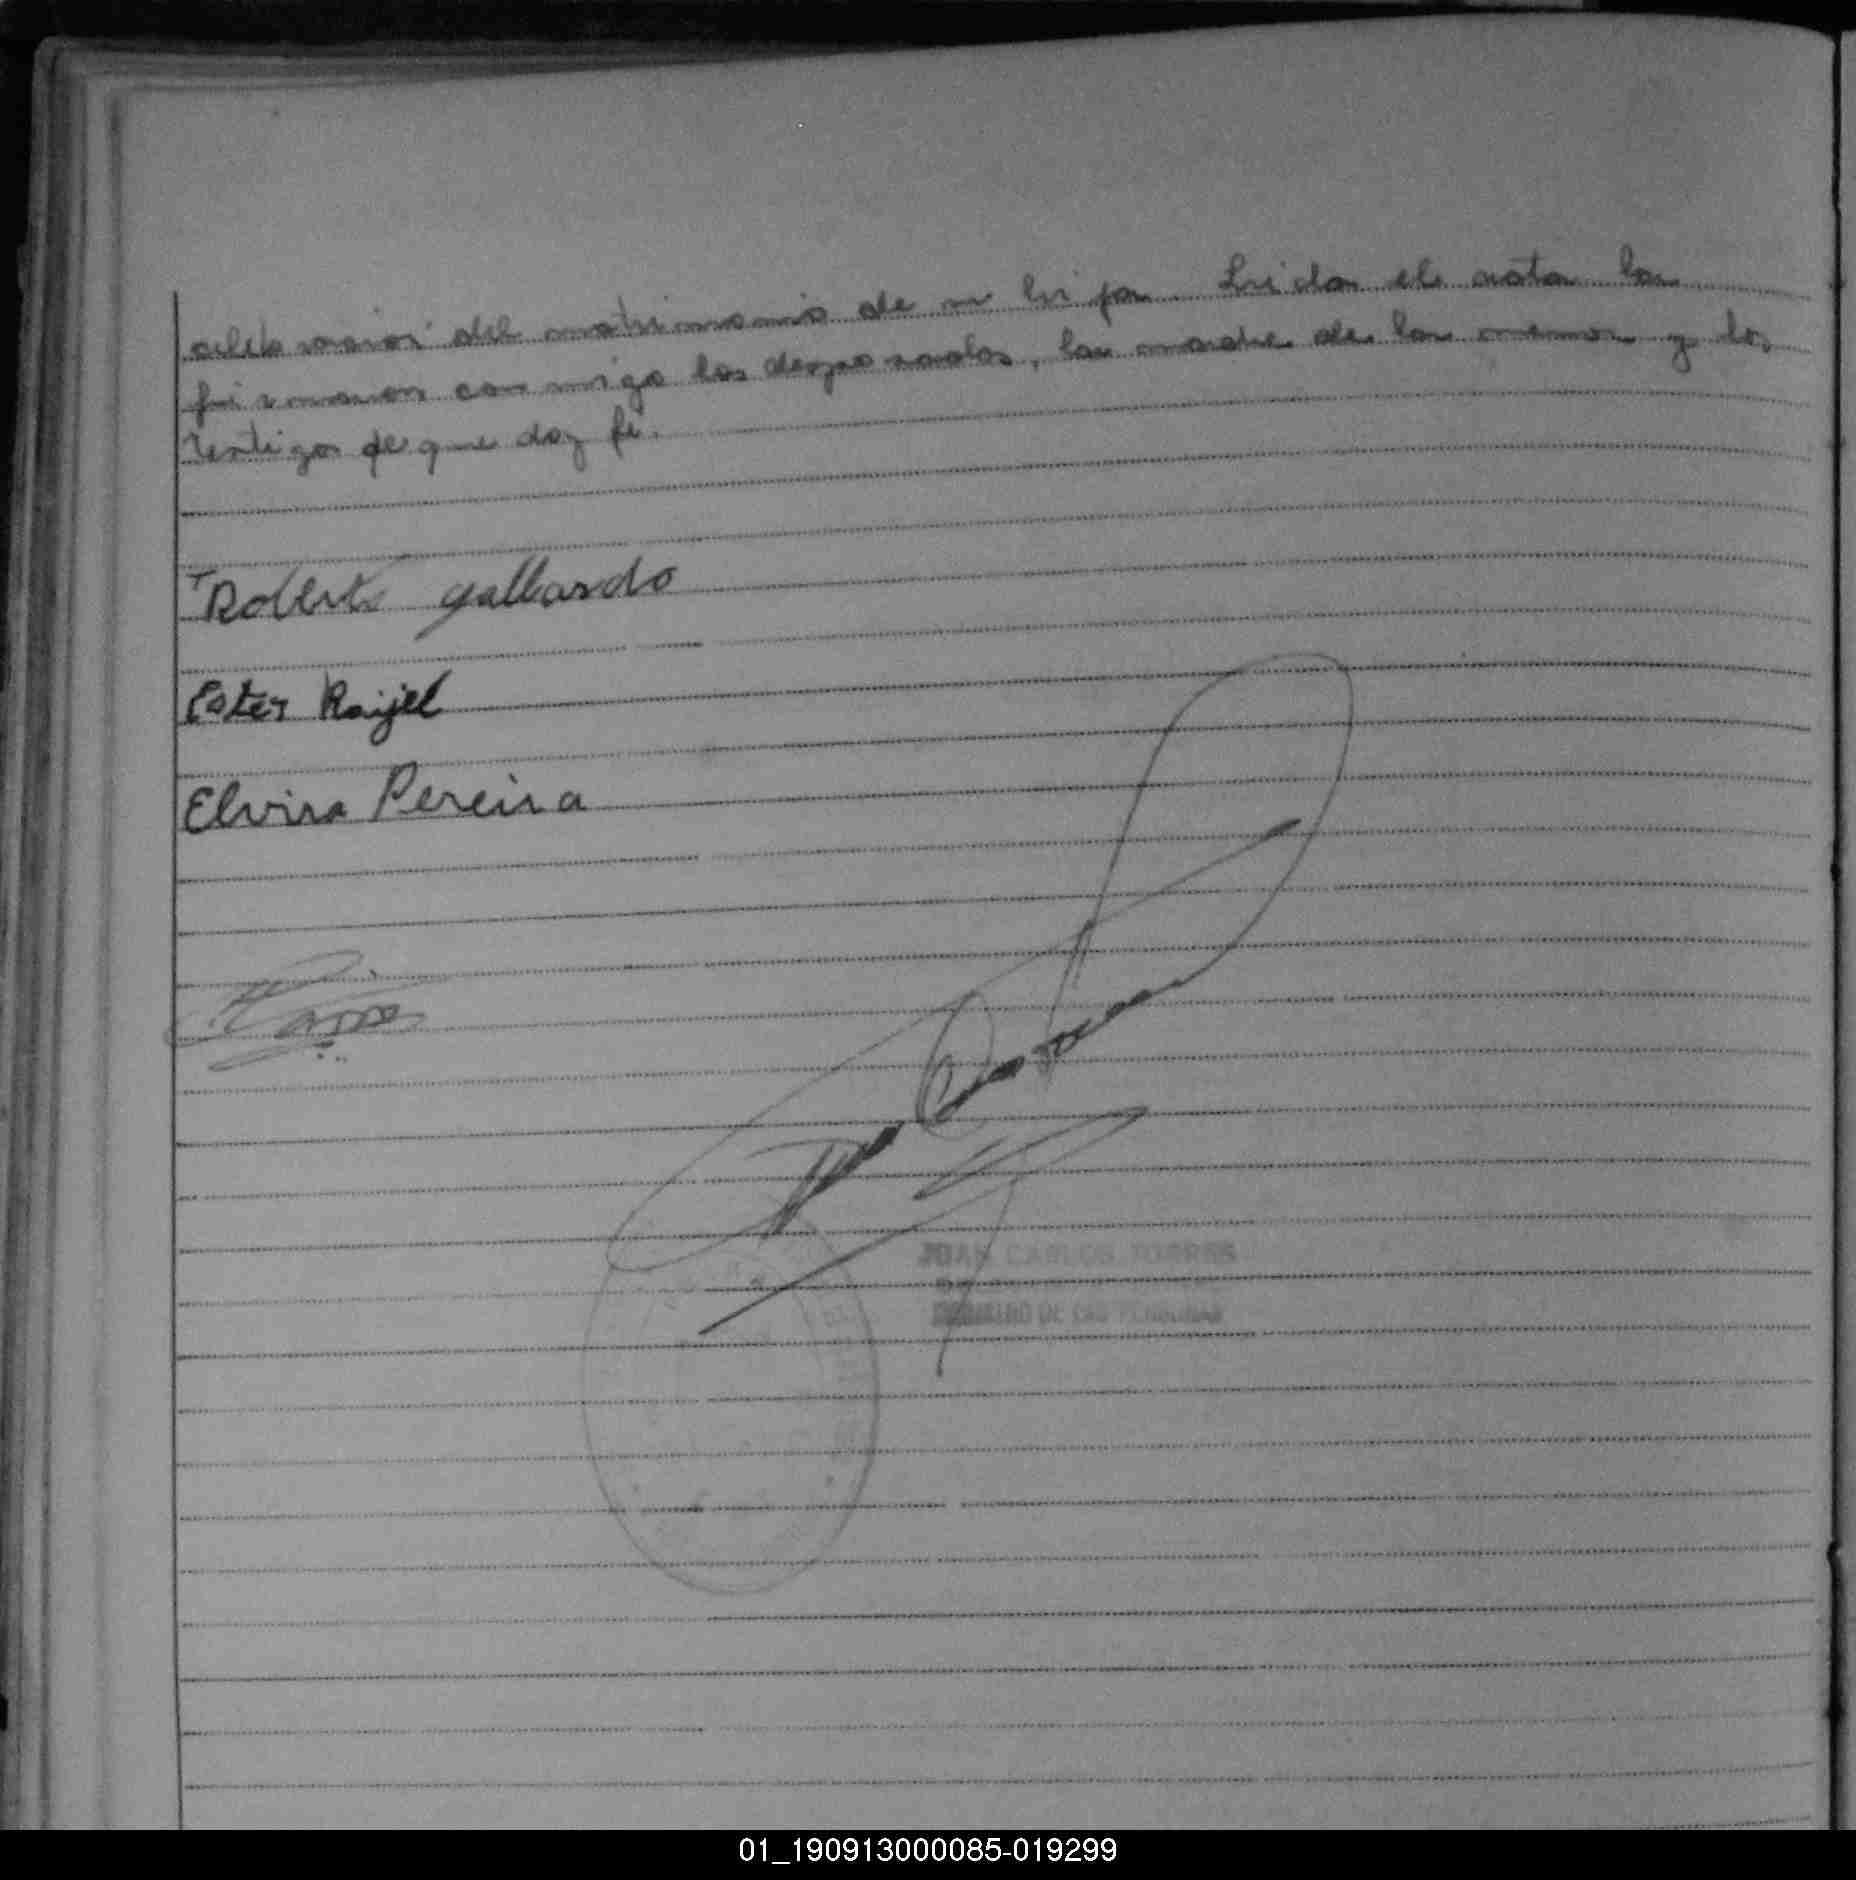 celebracion del matrimonio de su hija. Leida el acta la
firmaron conmigo los desposados, la madre de la menor y los
testigos de que doy fe.
Roberto Gallardo
Ester Raijel
Elvira Pereira
JUAN CARLOS TORRES
DE LAS PERSONAS
01_190913000085-019299